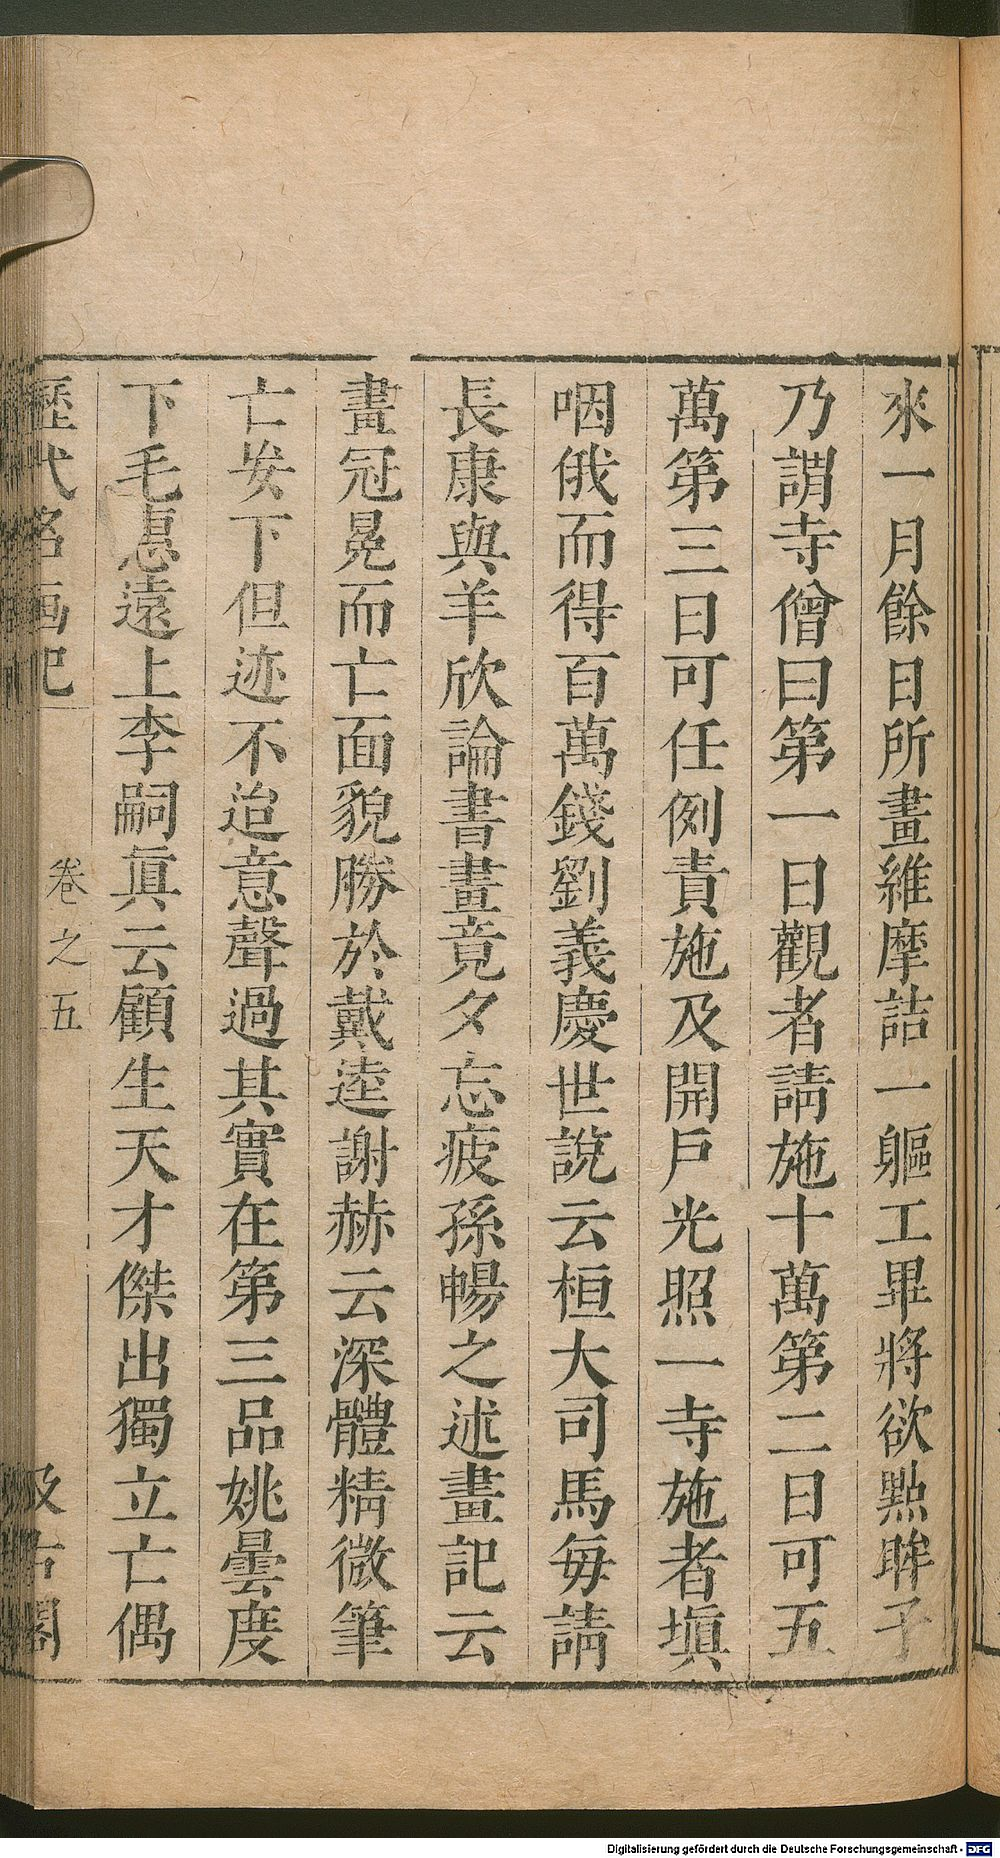 來一月餘日所畫維摩詰一軀工畢將欲點眸子
乃謂寺僧曰第一日觀者請施十萬第二日可五
萬第三日可任例責施及開戶光照一寺施者塡
咽俄而得百萬錢劉義慶世說云桓大司馬每請
長康與羊欣論書畫竟夕忘疲孫暢之述畫記云
畫冠冕而亡面貌勝於戴逵謝赫云深體精微筆
亡妄下但迹不迨意聲過其實在第三品姚曇度
下毛惠遠上李嗣眞云顧生天才傑出獨立亡偶
歷代名画記
卷之五
汲古閣
Digitalisierung gefördert durch die Deutsche Forschungsgemeinschaft - DFG